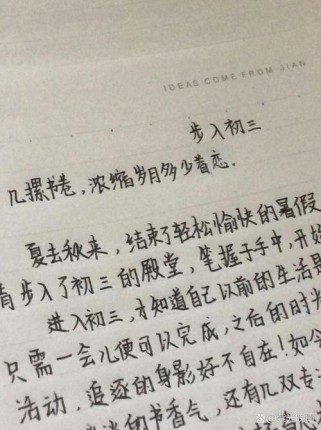 IDEAS COME FROM JIAN
步入初三
几摞书卷，浓缩岁月多少眷恋.
夏去秋来，结束了轻松愉快的暑假
步入了初三的殿堂，笔握于手中，开始
进入初三，才知道自己以前的生活是
只需一会儿便可以完成，之后的时光
活动，追逐的身影好不自在！如今
的书香气，还有几双专注